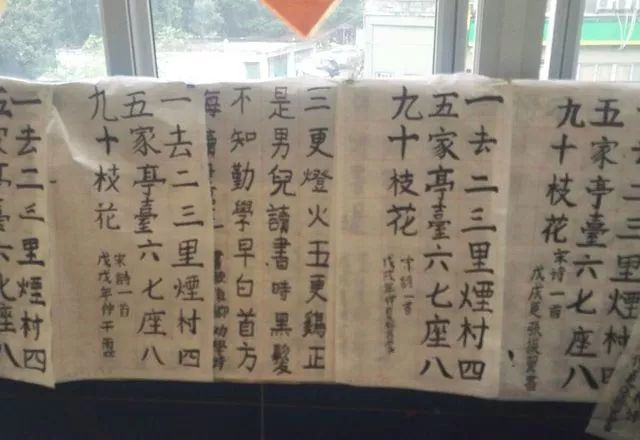 二三里煙村四
五家亭臺六七座八
九十枝花
宋詩一首
戊戌夏張
一去二三里煙村四
五家亭臺六七座八
九十枝花
宋詩一首
戊戌年仲夏
三更燈火五更鷄正
是男兒讀書時黑髮
不知勤學早白首方
悔讀書
勸學詩
一去二三里煙村四
五家亭臺六七座八
九十枝花
宋詩一首
戊戌年仲
一去二三里煙村四
五家亭臺六七座八